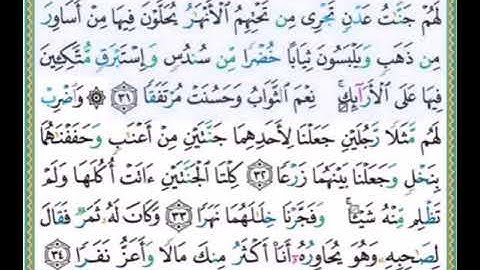 لَهُمْ جَنَّٰتُ عَدْنٍ تَجْرِى مِن تَحْتِهِمُ ٱلْأَنْهَٰرُ يُحَلَّوْنَ فِيهَا مِنْ أَسَاوِرَ
مِن ذَهَبٍ وَيَلْبَسُونَ ثِيَابًا خُضْرًا مِّن سُندُسٍ وَإِسْتَبْرَقٍ مُّتَّكِـِٔينَ
فِيهَا عَلَى ٱلْأَرَآئِكِ ۚ نِعْمَ ٱلثَّوَابُ وَحَسُنَتْ مُرْتَفَقًا ٣١ ۞ وَٱضْرِبْ
لَهُم مَّثَلًا رَّجُلَيْنِ جَعَلْنَا لِأَحَدِهِمَا جَنَّتَيْنِ مِنْ أَعْنَٰبٍ وَحَفَفْنَٰهُمَا
بِنَخْلٍ وَجَعَلْنَا بَيْنَهُمَا زَرْعًا ٣٢ كِلْتَا ٱلْجَنَّتَيْنِ ءَاتَتْ أُكُلَهَا وَلَمْ
تَظْلِم مِّنْهُ شَيْـًٔا ۚ وَفَجَّرْنَا خِلَٰلَهُمَا نَهَرًا ٣٣ وَكَانَ لَهُۥ ثَمَرٌ فَقَالَ
لِصَٰحِبِهِۦ وَهُوَ يُحَاوِرُهُۥٓ أَنَا۠ أَكْثَرُ مِنكَ مَالًا وَأَعَزُّ نَفَرًا ٣٤